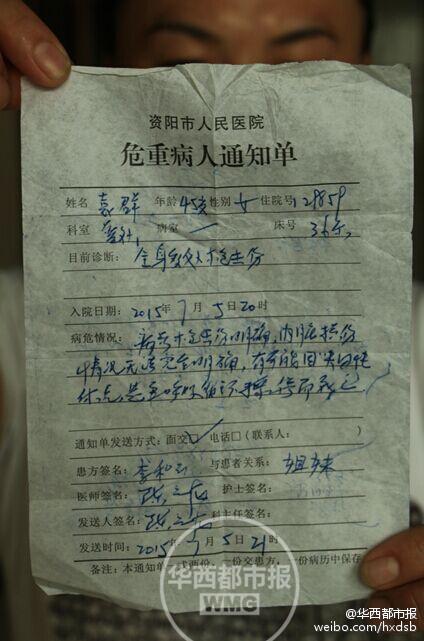 资阳市人民医院
危重病人通知单
姓名 袁群 年龄 45岁 性别 女 住院号 129859
科室 普外 病室 一 床号 36床
目前诊断: 全身多处枪击伤
入院日期: 2015年7月5日20时
病危情况: 患者枪击伤明确, 内脏损伤
情况无法完全明确, 有可能因
体克, 呼吸循环 而死亡
通知单发送方式: 面交☑ 电话□ (联系人: )
患方签名: 李和 与患者关系: 姐妹
医师签名: 护士签名:
发送人签名: 科主任签名:
发送时间: 2015年7月5日21时
备注: 本通知单一式两份, 一份交患方, 一份病历中保存
华西都市报
WMG
@华西都市报
weibo.com/hxdsb